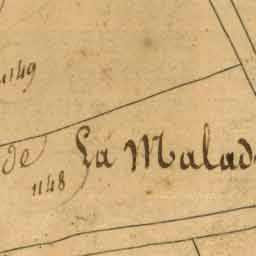 1149
de La Malad
1148